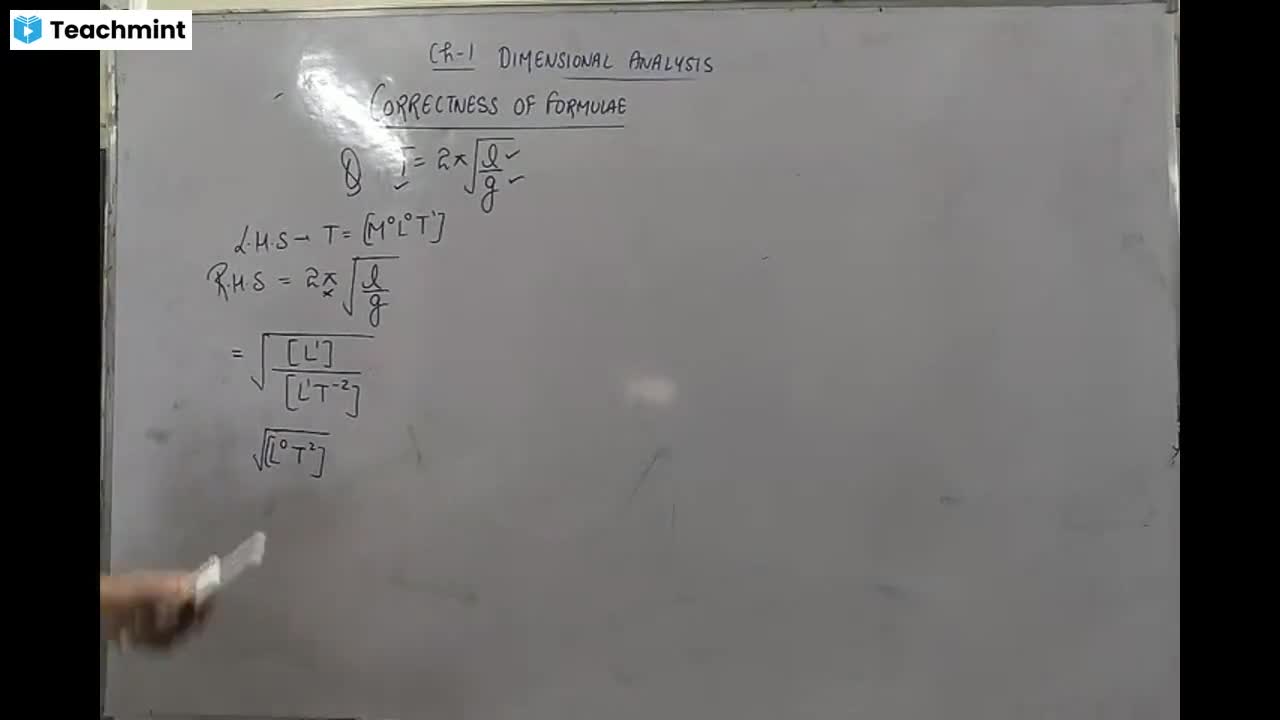 Teachmint
Ch-1 DIMENSIONAL ANALYSIS
CORRECTNESS OF FORMULAE
Q T = 2π√(l/g)
L.H.S – T = [M⁰L⁰T¹]
R.H.S = 2π√(l/g)
= √([L¹]/[L¹T⁻²])
√[L⁰T²]